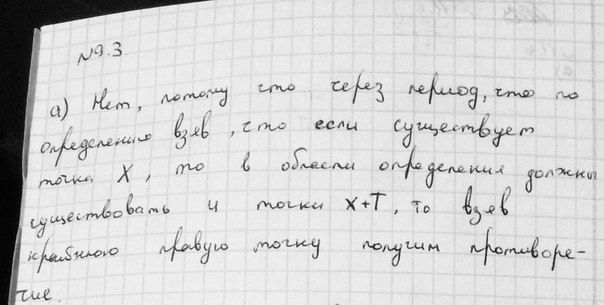 №9.3.
а) Нет, потому что через период, что по
определению взяв, что если существует
точка X, то в области определения должны
существовать и точки X+T, то взяв
крайнюю правую точку получим противоре-
чие.